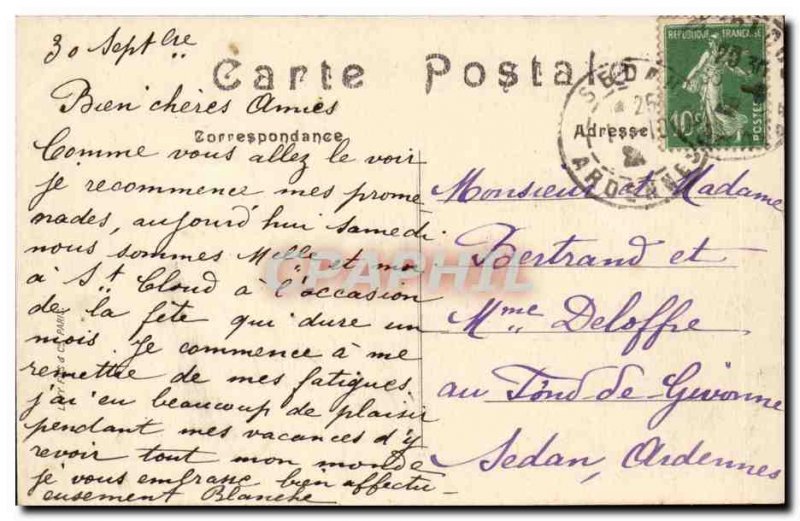 30 Septbre
Carte Postale
Bien chères Amies
Correspondance
Comme vous allez le voir
je recommence mes prome
nades, aujourd'hui samedi
nous sommes Melle et moi
à St Cloud à l'occasion
de la fête qui dure un
mois. Je commence à me
remettre de mes fatigues,
j'ai eu beaucoup de plaisir
pendant mes vacances d'y
revoir tout mon monde
je vous embrasse bien affectu
eusement Blanche
REPUBLIQUE FRANÇAISE
10c
POSTES
SEDAN
ARDENNES
Adresse
Monsieur et Madame
Bertrand et
Mme Deloffre
au Fond-de-Givonne
Sedan, Ardennes
CPAPHIL
PARIS